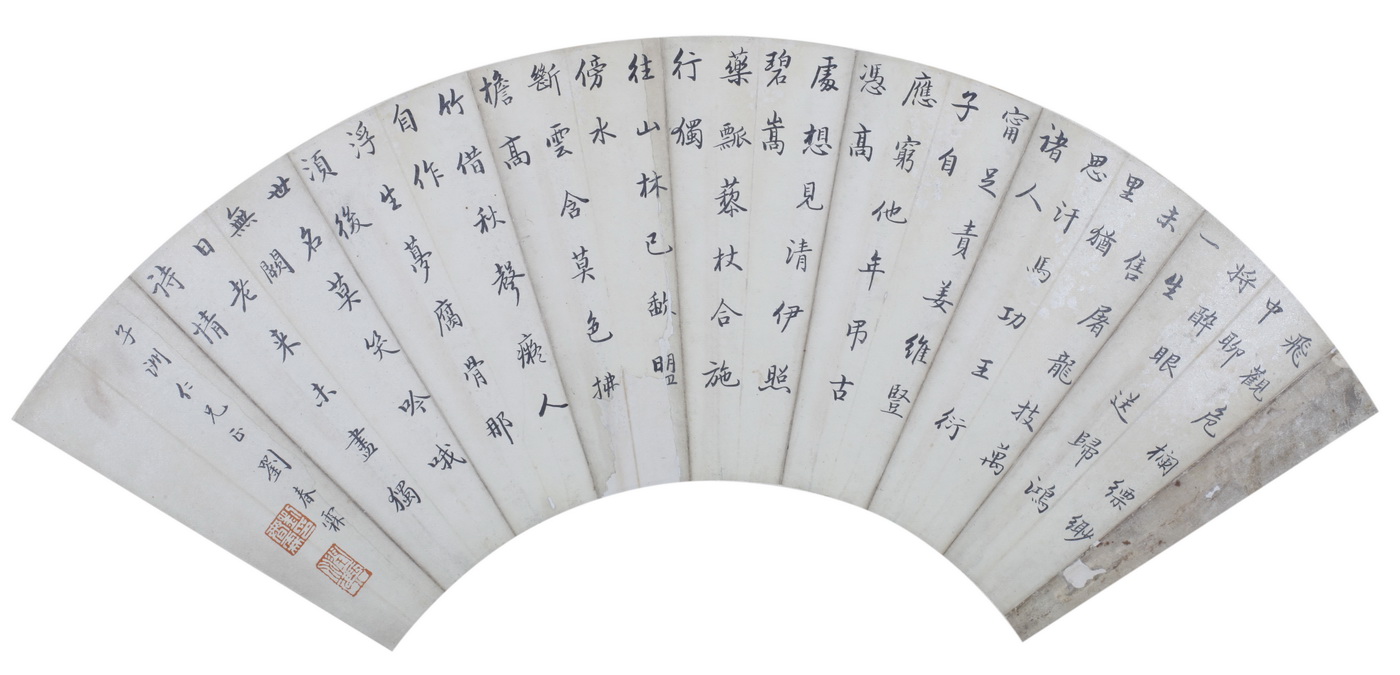 飛觀危欄縹緲
中聊
將醉眼送歸鴻
一生
未售屠龍技萬
里猶
思汗馬功王衍
諸人
甯足責姜維豎
子自
應窮他年弔古
憑高
處想見清伊照
碧嵩
藥瓢藜杖合施
行獨
往山林已歃盟
傍水
斷雲含莫色拂
檐高
竹借秋聲癡人
自作
浮生夢腐骨那
須後
世名莫笑吟哦
無闕
日老來未盡獨
詩情
子洲仁兄正 劉春霖